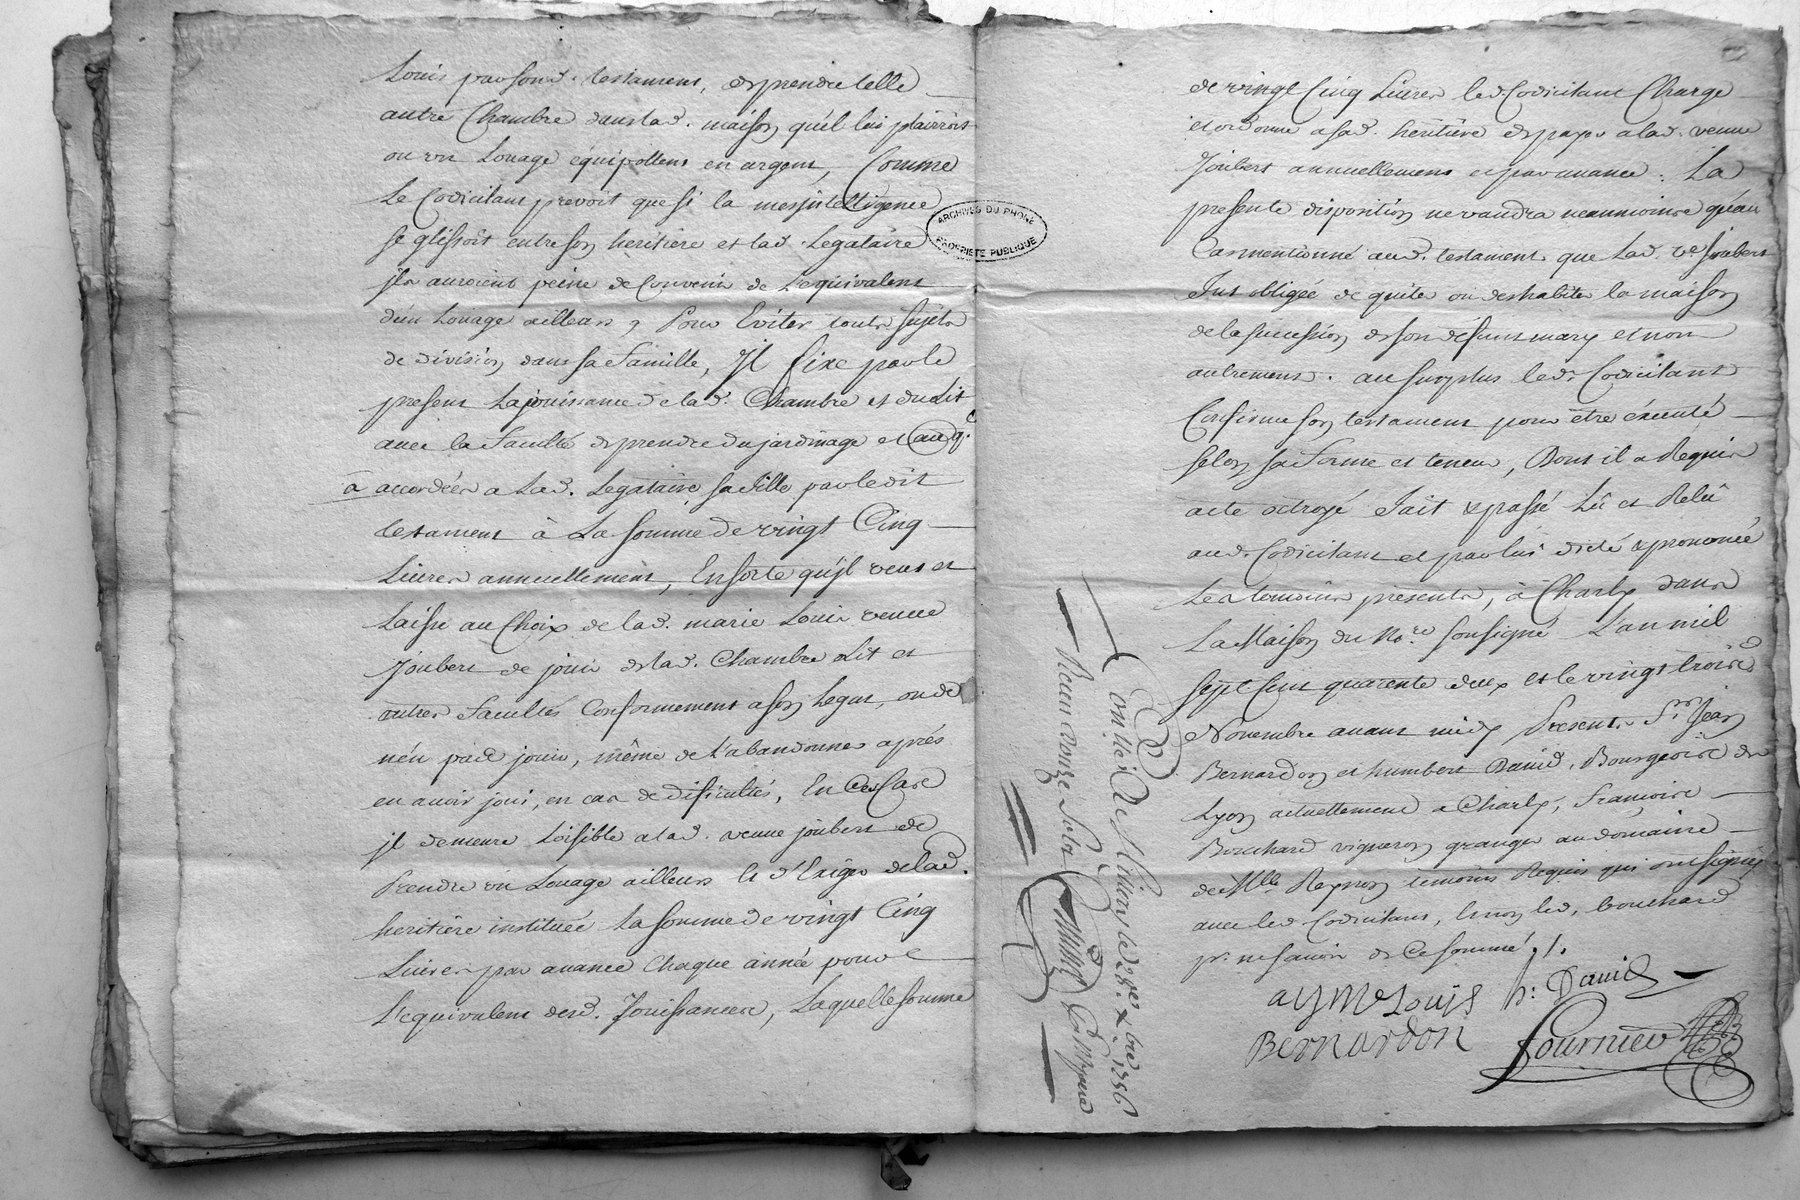 Louis par sond. testament, de prendre telle
autre Chambre dans lad. maison qu'el lui plairoit
ou un Louage équipollent en argent, Comme
Le Codicilant prevoit que si la mesintelligence
se glissoit entre son heritière et lad. Legataire
ils auroient peine de Convenir de L'equivalent
d'un Louage ailleurs, Pour Eviter touts sujets
de division dans sa famille, Il fixe par le
present La jouissance de lad. Chambre et du Lit
avec la faculté de prendre du jardinage et
à accordées a Lad. Legataire sa fille par ledit
testament à La somme de vingt Cinq
Livres annuellement, En sorte qu'jl veut et
Laisse au Choix de lad. marie Louis veuve
Joubert de jouir de lad. Chambre Lit et
autres facultés Conformement a son Legat, ou de
n'en pas jouir, même de l'abandonner aprés
en avoir joui, en cas de dificultés, En Ces Cas
jl demeure Loisible a lad. veuve joubert de
Prendre un Louage ailleurs et d'Exiger de lad.
heritière instituée La somme de vingt Cinq
Livres par avance Chaque année pour
L'equivalent desd. Jouissances, Laquelle somme
ARCHIVES DU RHONE
PROPRIETE PUBLIQUE
de vingt Cinq Livres led. Codicilant Charge
et ordonne a sad. heritière de payer a lad. veuve
Joubert annuellement et par avance. La
presente disposition ne vaudra neanmoins qu'au
Cas mentionné aud. testament que Lad. ve Joubert
fut obligée de quiter ou deshabiter la maison
de la succession de son défunt mary et non
autrement. au surplus led. Codicilant
Confirme son testament pour être éxécuté
selon sa forme et teneur, Dont il a Requis
acte octroyé fait & passé Lû et Relû
aud. Codicilant et par lui dicté & prononcé
Les temoins présents, à Charly dans
La Maison du Nore soussigné L'an mil
sept Cent quarente deux et le vingt trois
Novembre avant midy Presents Sr. Jean
Bernardon et humbert David, Bourgeois de
Lyon actuellement a Charly, francois
Bouchard vigneron granger au domaine
de Mlle Reynon temoins Requis qui ont signé
avec led. Codicilant, sinon led. bouchard
pr. ne savoir de Ce sommé ./.
aymé Louis h: David
Bernardon fournier
Conllé à Millery le 23. 9bre 1756
Recu onze sols